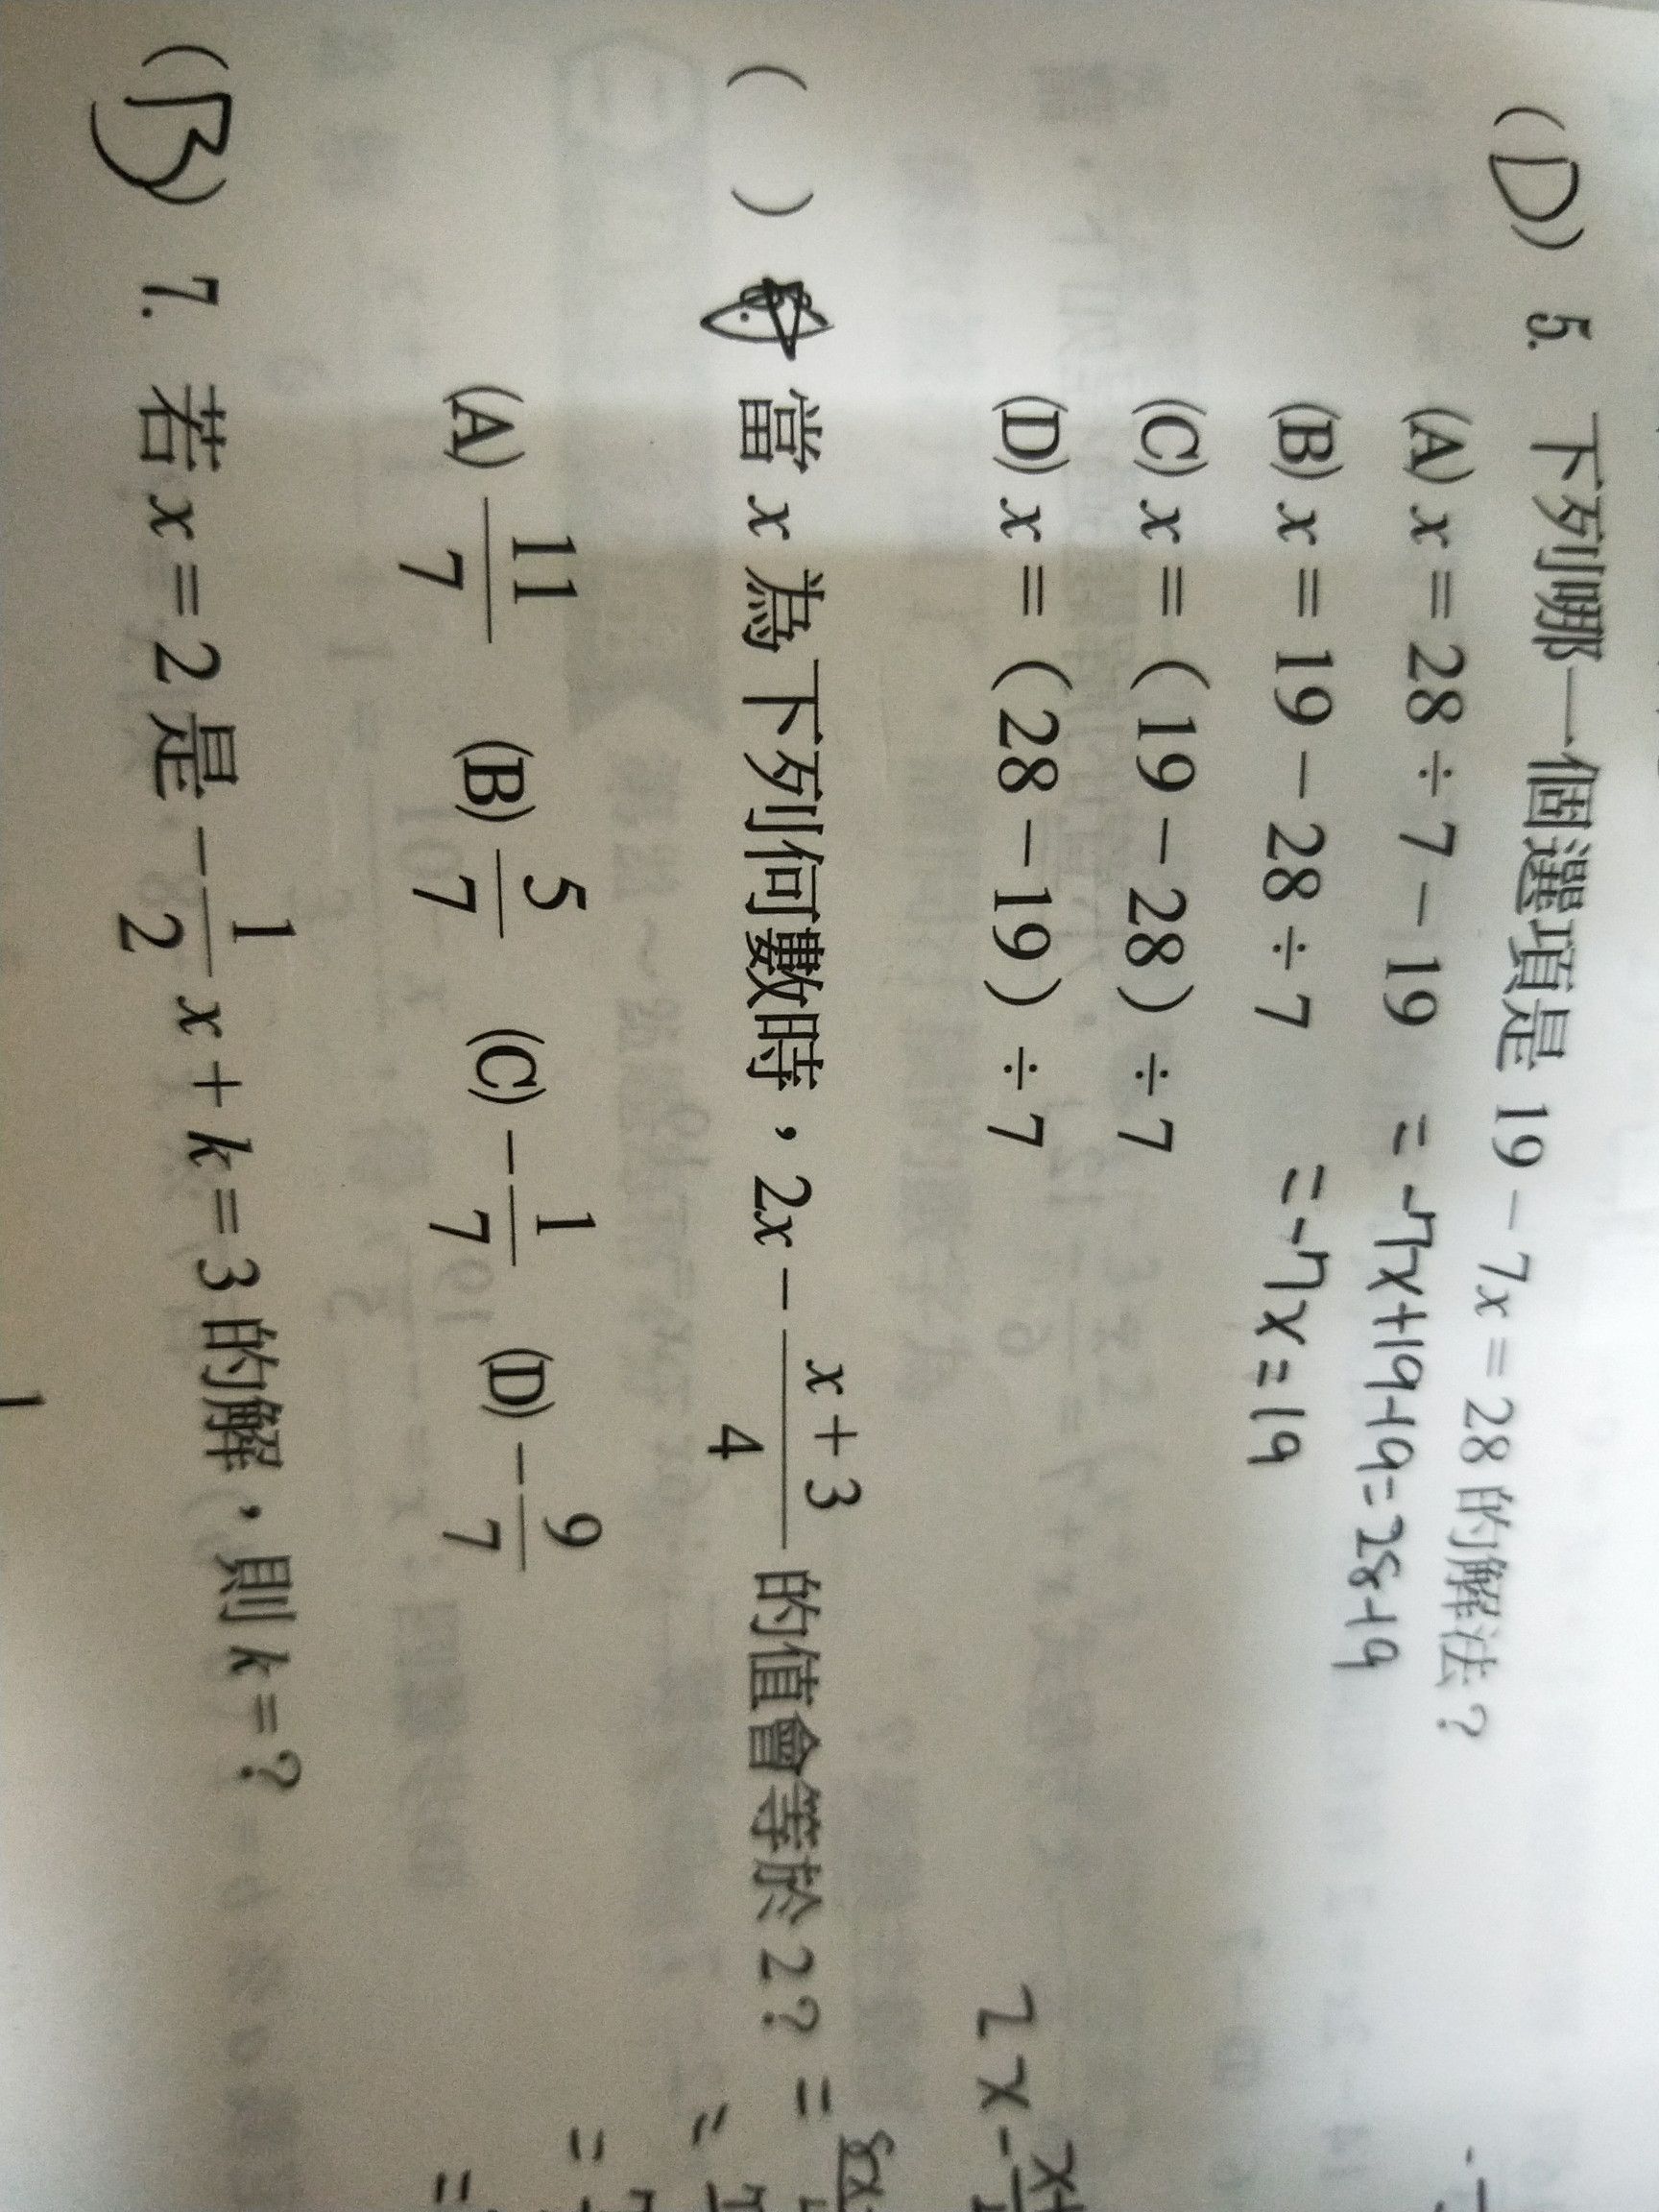 (D) 5. 下列哪一個選項是 19 - 7x = 28 的解法？
(A) x = 28 ÷ 7 - 19 = -7x+19-19=28-19
(B) x = 19 - 28 ÷ 7 = -7x=19
(C) x = (19 - 28) ÷ 7
(D) x = (28 - 19) ÷ 7
2x-
( ) 當 x 為下列何數時，2x - \frac{x+3}{4} 的值會等於 2？ =
(A) \frac{11}{7} (B) \frac{5}{7} (C) -\frac{1}{7} (D) -\frac{9}{7}
(B) 7. 若 x = 2 是 -\frac{1}{2}x + k = 3 的解，則 k = ?